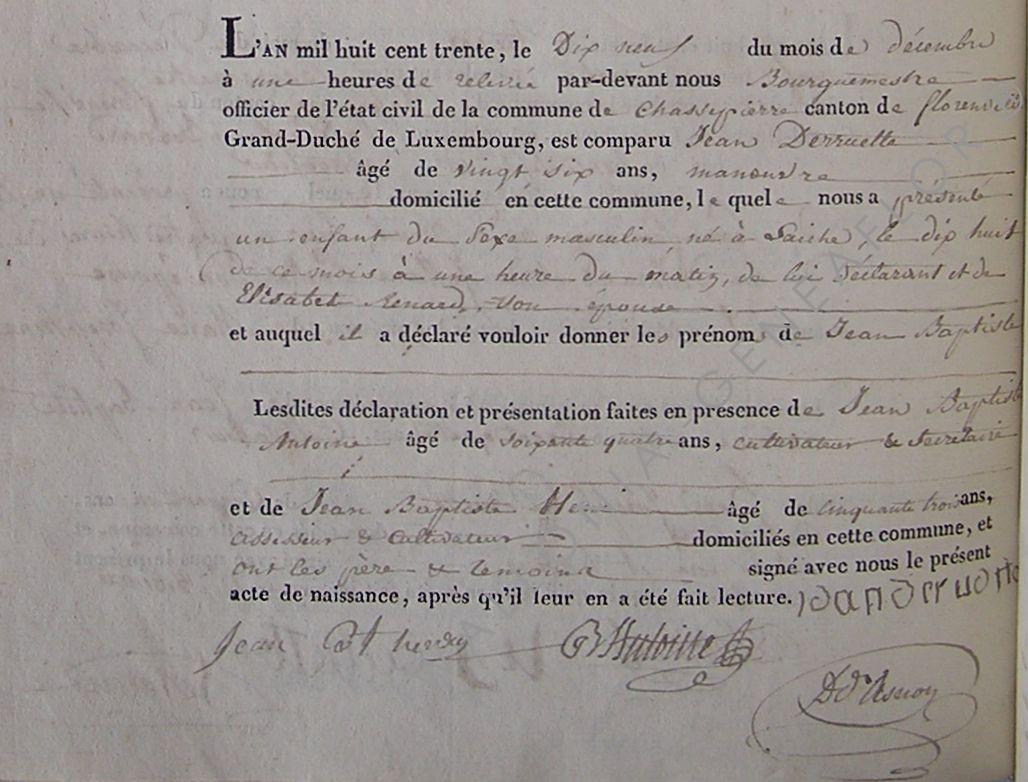 L'AN mil huit cent trente, le Dix neuf du mois de décembre
à une heures de relevée par-devant nous Bourguemestre
officier de l'état civil de la commune de Chassepierre canton de florenville
Grand-Duché de Luxembourg, est comparu Jean Derruette
âgé de vingt six ans, manouvre
domicilié en cette commune, le quel nous a présenté
un enfant du Sexe masculin né à Laiche, le dix huit
de ce mois à une heure du matin, de lui déclarant et de
Elisabet Renard, son épouse
et auquel il a déclaré vouloir donner les prénoms de Jean Baptiste
Lesdites déclaration et présentation faites en presence de Jean Baptiste
Antoine âgé de soixante quatre ans, cultivateur & Secretaire
et de Jean Baptiste Henri âgé de cinquante trois ans,
assesseur & cultivateur domiciliés en cette commune, et
ont les père & temoins signé avec nous le présent
acte de naissance, après qu'il leur en a été fait lecture.
Jean Bt